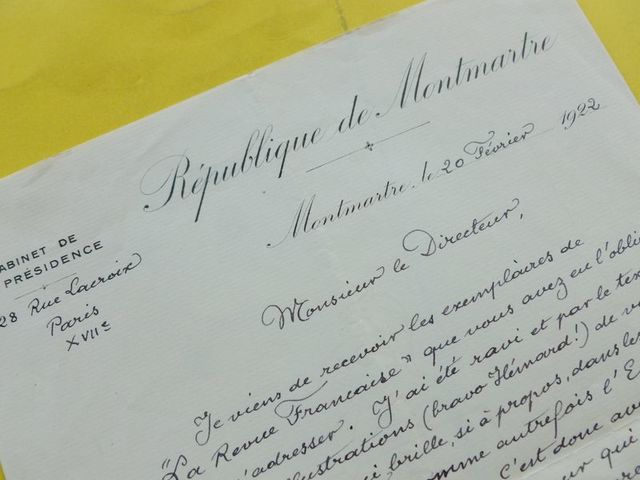 République de Montmartre
Montmartre, le 20 Février 1922
ABINET DE
PRÉSIDENCE
28 Rue Lacroix
Paris
XVIIe
Monsieur le Directeur,
Je viens de recevoir les exemplaires de
"La Revue Française" que vous avez eu l'obli
m'adresser. J'ai été ravi et par le tex
lustrations (bravo Hémard!) de v
ui brille, si à propos, dans les
omme autrefois l'E
C'est donc ave
eur qui